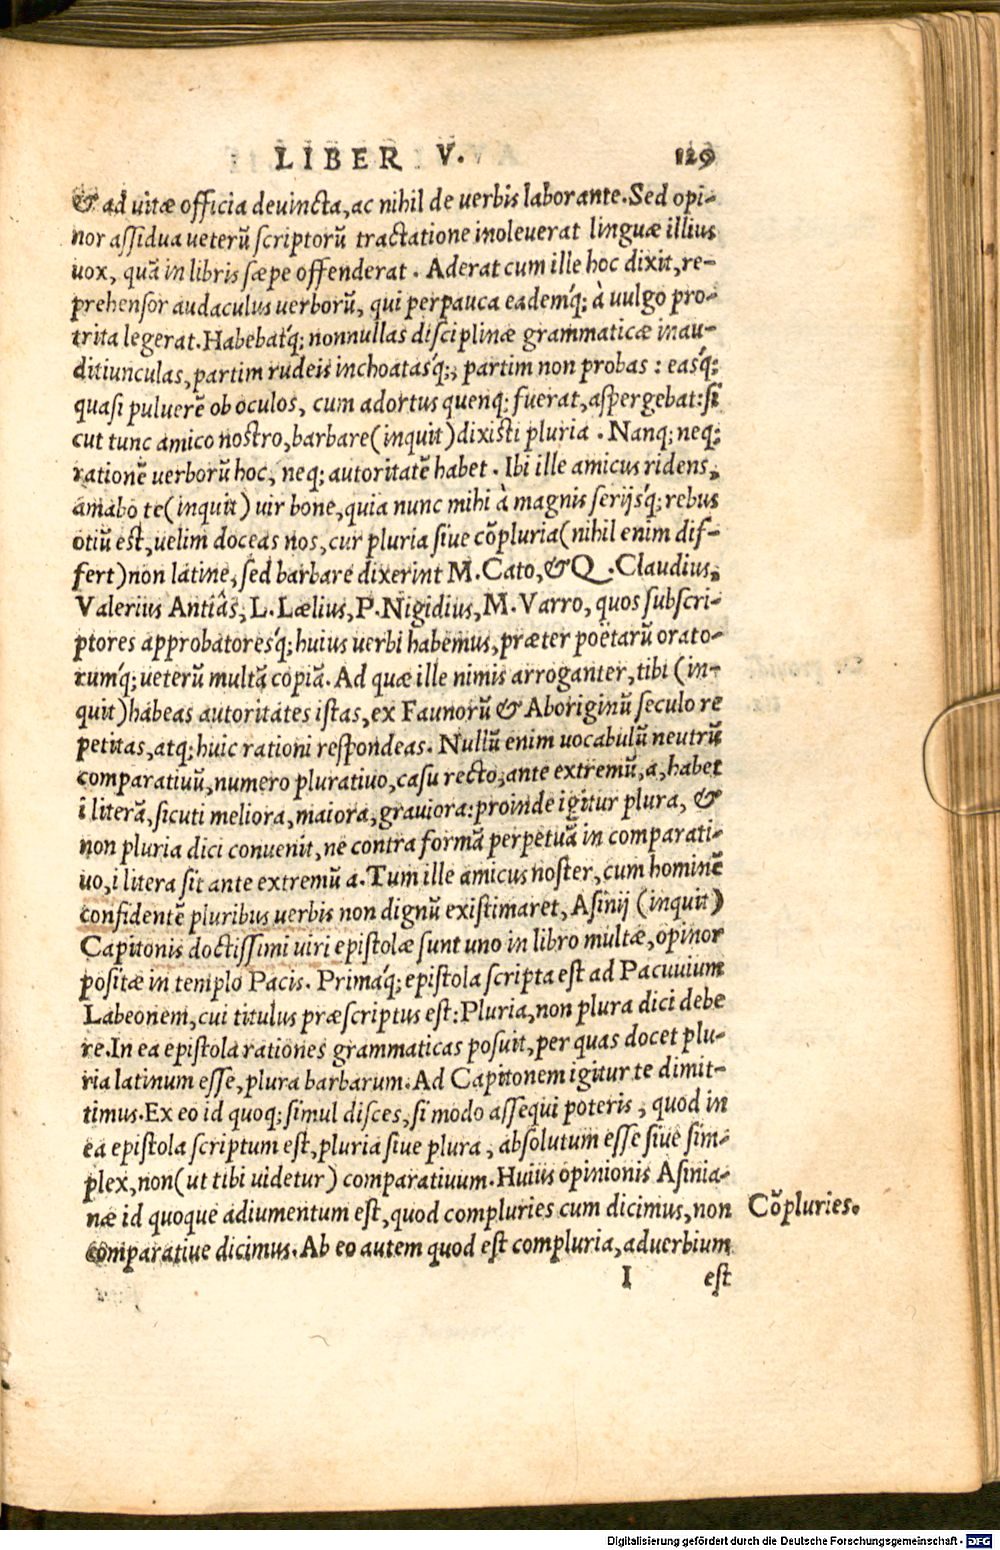 LIBER V. 129
& ad uitæ officia deuincta, ac nihil de uerbis laborante. Sed opi-
nor assidua ueterũ scriptorũ tractatione inoleuerat linguæ illius
uox, quã in libris sæpe offenderat. Aderat cum ille hoc dixit, re-
prehensor audaculus uerborũ, qui perpauca eademq́; à uulgo pro-
trita legerat. Habebatq́; nonnullas disciplinæ grammaticæ inau-
ditiunculas, partim rudeis inchoatasq́;, partim non probas: easq́;
quasi puluerẽ ob oculos, cum adortus quenq; fuerat, aspergebat: si
cut tunc amico nostro, barbare (inquit) dixisti pluria. Nanq; neq;
rationẽ uerborũ hoc, neq; autoritatẽ habet. Ibi ille amicus ridens,
amabo te (inquit) uir bone, quia nunc mihi à magnis serijsq́; rebus
otiũ est, uelim doceas nos, cur pluria siue cõpluria (nihil enim dif-
fert) non latine, sed barbare dixerint M. Cato, & Q. Claudius,
Valerius Antiâs, L. Lælius, P. Nigidius, M. Varro, quos subscri-
ptores approbatoresq́; huius uerbi habemus, præter poëtarũ orato-
rumq́; ueterũ multã copiã. Ad quæ ille nimis arroganter, tibi (in-
quit) habeas autoritates istas, ex Faunorũ & Aboriginũ seculo re
petitas, atq; huic rationi respondeas. Nullũ enim uocabulũ neutrũ
comparatiuũ, numero pluratiuo, casu recto, ante extremũ, a, habet
i literã, sicuti meliora, maiora, grauiora: proinde igitur plura, &
non pluria dici conuenit, ne contra formã perpetuã in comparati-
uo, i litera sit ante extremũ a. Tum ille amicus noster, cum hominẽ
confidentẽ pluribus uerbis non dignũ existimaret, Asinij (inquit)
Capitonis doctissimi uiri epistolæ sunt uno in libro multæ, opinor
positæ in templo Pacis. Primaq́; epistola scripta est ad Pacuuium
Labeonem, cui titulus præscriptus est: Pluria, non plura dici debe
re. In ea epistola rationes grammaticas posuit, per quas docet plu-
ria latinum esse, plura barbarum. Ad Capitonem igitur te dimit-
timus. Ex eo id quoq; simul disces, si modo assequi poteris, quod in
ea epistola scriptum est, pluria siue plura, absolutum esse siue sim-
plex, non (ut tibi uidetur) comparatiuum. Huius opinionis Asinia-
næ id quoque adiumentum est, quod compluries cum dicimus, non
Cõpluries.
comparatiue dicimus. Ab eo autem quod est compluria, aduerbium
I est
Digitalisierung gefördert durch die Deutsche Forschungsgemeinschaft - DFG